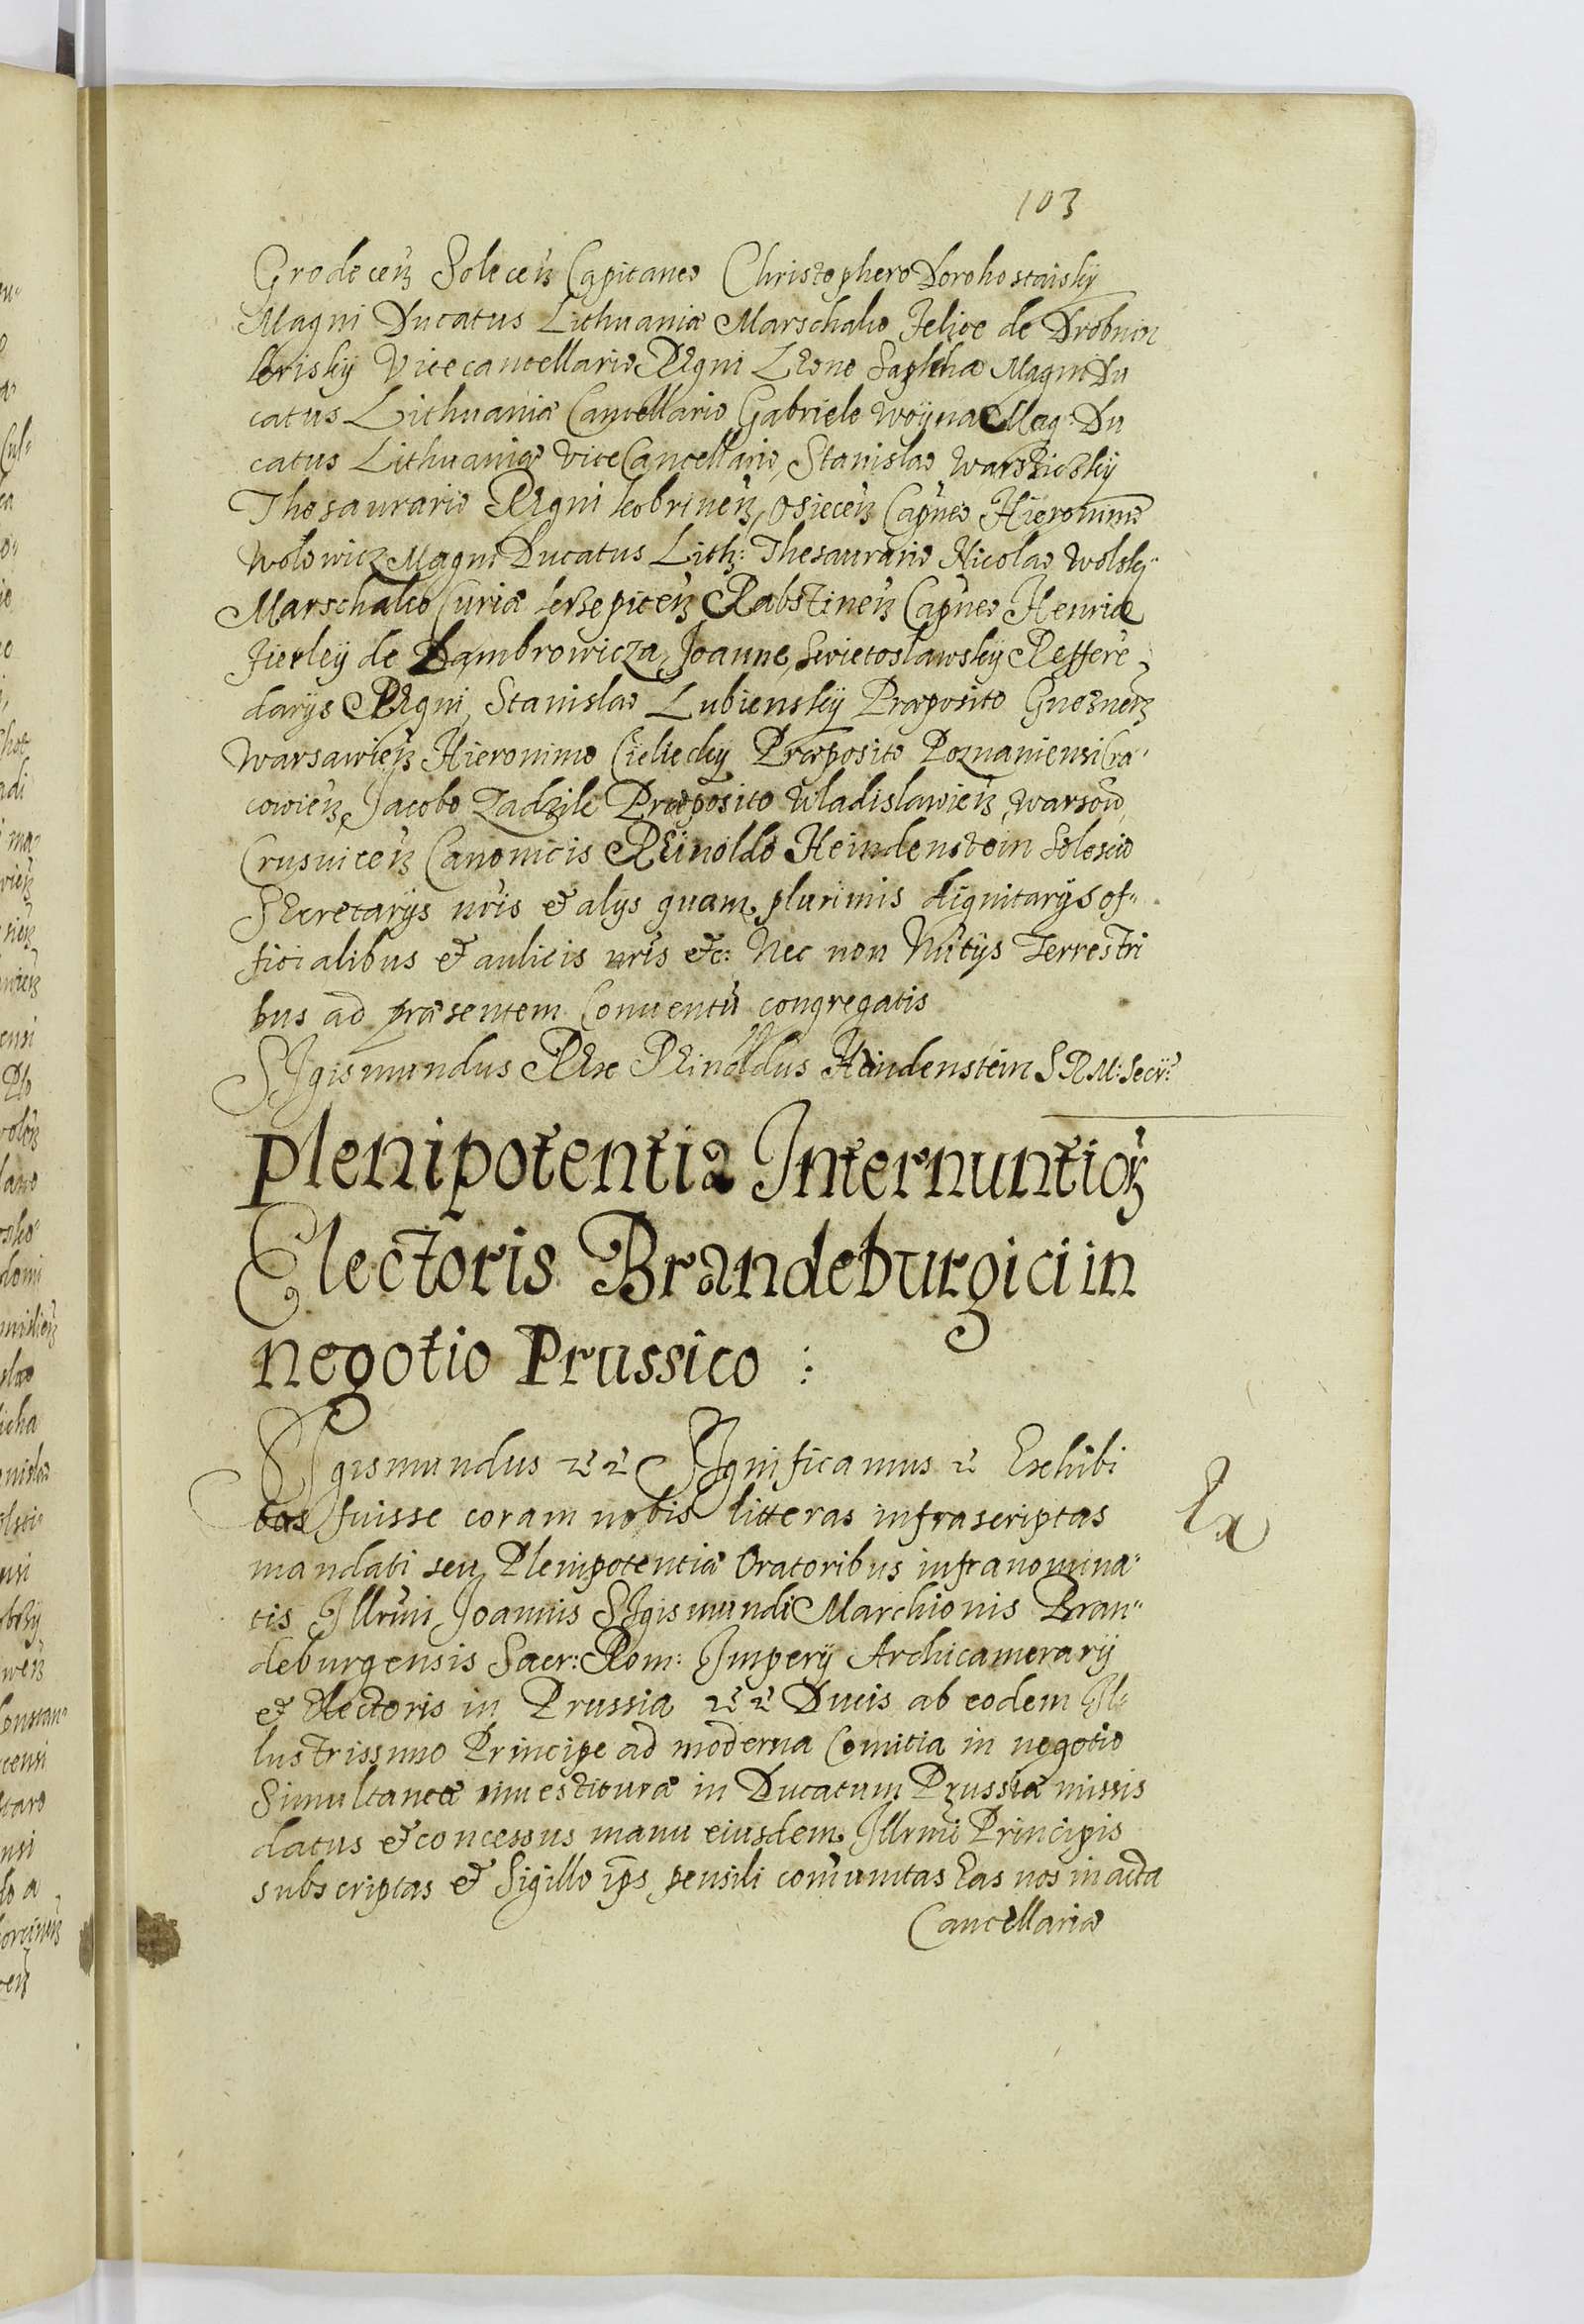 103
Grodecen̄ Solecen̄ Capitaneo Christophero Dorohostaisky
Magni Ducatus Lithuaniæ Marschalco Felice de Drobnin
krisky Vicecancellario Regni Leone Sapiha Magni Du
catus Lithuaniæ Cancellario Gabriele Woÿna Mag: Du
catus Lithuaniæ ViceCancellario, Stanislao Warszicky
Thesaurario Regni kobrinen̄, Osiecen̄ Capn̄eo Hieronimo
Wolowicz Magni Ducatus Lith: Thesaurario Nicolao Wolsky
Marschalco Curiæ krzepicen̄ Rabstinen̄ Capn̄eo Henrico
Firley de Dambrowicza, Joanne, Swietoslawsky Reffere
darijs Regni, Stanislao Lubiensky Præposito Gneznen̄
Warsawien̄ Hieronimo Cieliecky Præposito Poznaniensi Cra"
cowien̄, Jacobo Zadzik Præposito Wladislawien̄, Warsow,
Crusuicen̄ Canonicis Reinoldo Heindenstein Solescio
Secretarijs nr̄is & alijs quam plurimis dignitarijs of"
ficialibus & aulicis nr̄is etc: Nec non Nūtijs Terrestri
bus ad præsentem Conuentū congregatis
SIgismundus Rex Reinoldus Heindenstein S R M: Secr̄:
Plenipotentia Internuntioꝝ
Electoris Brandeburgici in
negotio Prussico :
SIgismundus ꝛc̄ ꝛc̄ SIgnificamus ꝛc̄ Exhibi
tas fuisse coram nobis litteras infrascriptas
mandati seu Plenipotentiæ Oratoribus infranomina"
tis Illrm̄i Joannis SIgismundi Marchionis Bran"
deburgensis Sacr: Rom: Imperij Archicamerarij
& Electoris in Prussia ꝛc̄ ꝛc̄ Ducis ab eodem Il"
lustrissimo Principe ad moderna Comitia in negotio
Simultaneæ inuestituræ in Ducatum Prussiæ missis
datus & concessus manu eiusdem Illrmi Principis
subscriptas & Sigillo ip̄s pensili com̄unitas Eas nos in acta
Cancellariæ